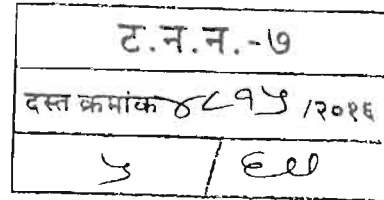 ट.न.न.-७
दस्त क्रमांक ४८१५ /२०१६
५ / ६७